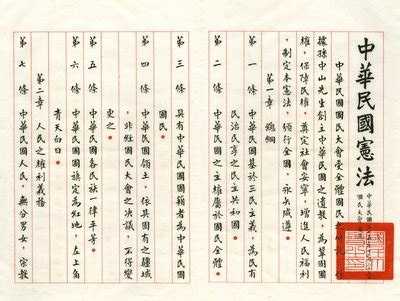 中華民國憲法
中華民國
國民大會通過
中華民國國民大會受全體國民之付託，依
據孫中山先生創立中華民國之遺教，為鞏固國
權，保障民權，奠定社會安寧，增進人民福利
，制定本憲法，頒行全國，永矢咸遵。
第一章 總綱
第一條 中華民國基於三民主義，為民有
民治民享之民主共和國。
第二條 中華民國之主權屬於國民全體。
第三條 具有中華民國國籍者為中華民國
國民。
第四條 中華民國領土，依其固有之疆域
，非經國民大會之決議，不得變
更之。
第五條 中華民國各民族一律平等。
第六條 中華民國國旗定為紅地，左上角
青天白日。
第二章 人民之權利義務
第七條 中華民國人民，無分男女，宗教